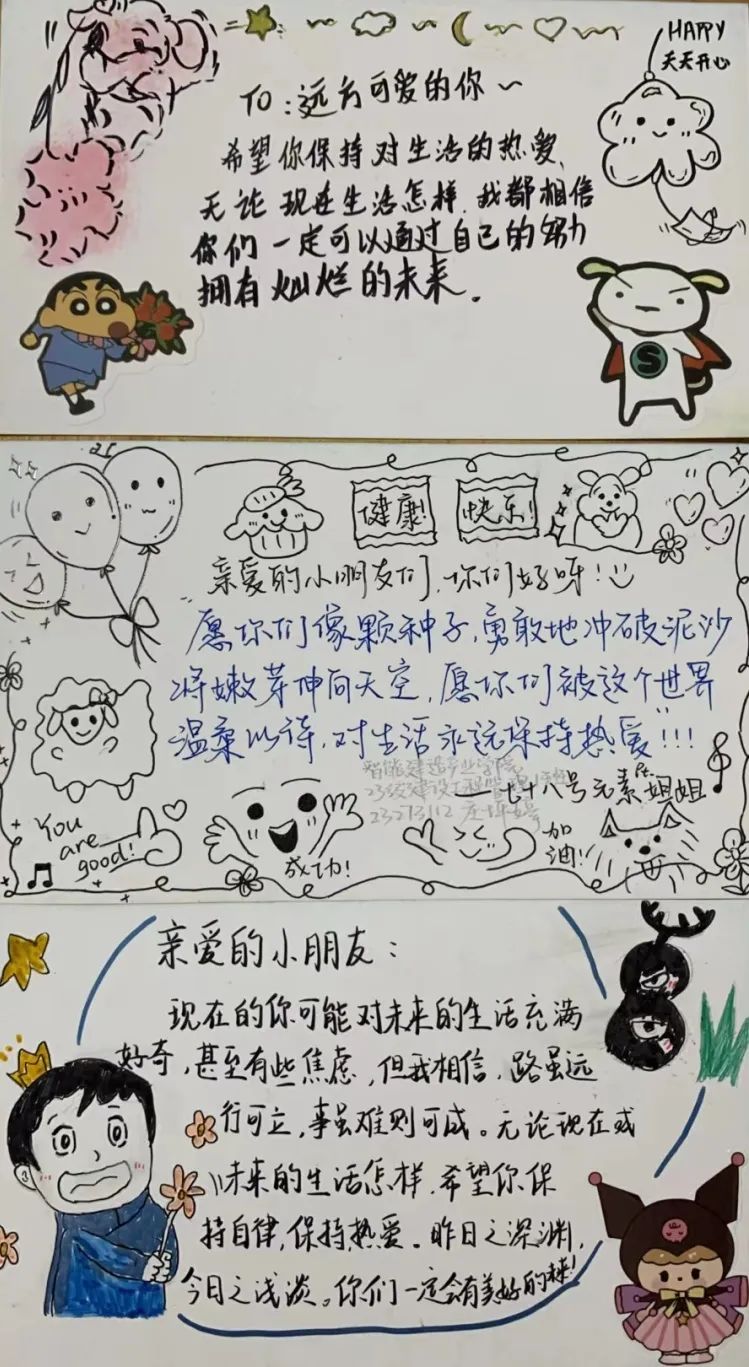 HAPPY
天天开心
TO：远方可爱的你～
希望你保持对生活的热爱，
无论现在生活怎样，我都相信
你们一定可以通过自己的努力
拥有灿烂的未来．
S
健康！
快乐！
亲爱的小朋友们，你们好呀！
愿你们像颗种子，勇敢地冲破泥沙
将嫩芽伸向天空，愿你们被这个世界
温柔以待，对生活永远保持热爱！！！
智能建造产业学院
23级建设工程管理
23273112
——七十八号元素姐姐
You
are
good!
成功！
加
油！
亲爱的小朋友：
现在的你可能对未来的生活充满
好奇，甚至有些焦虑，但我相信，路虽远
行可立，事虽难则可成。无论现在或
未来的生活怎样，希望你保
持自律，保持热爱。昨日之深渊，
今日之浅淡。你们一定会有美好的未来！